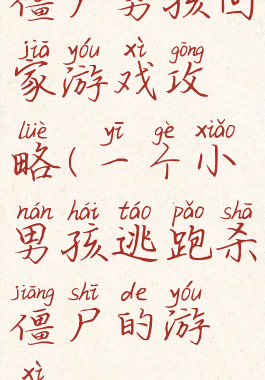 僵尸男孩回
jiā yóu xì gōng
家游戏攻
lüè yī gè xiǎo
略(一个小
nán hái táo pǎo shā
男孩逃跑杀
jiāng shī de yóu
僵尸的游
xì